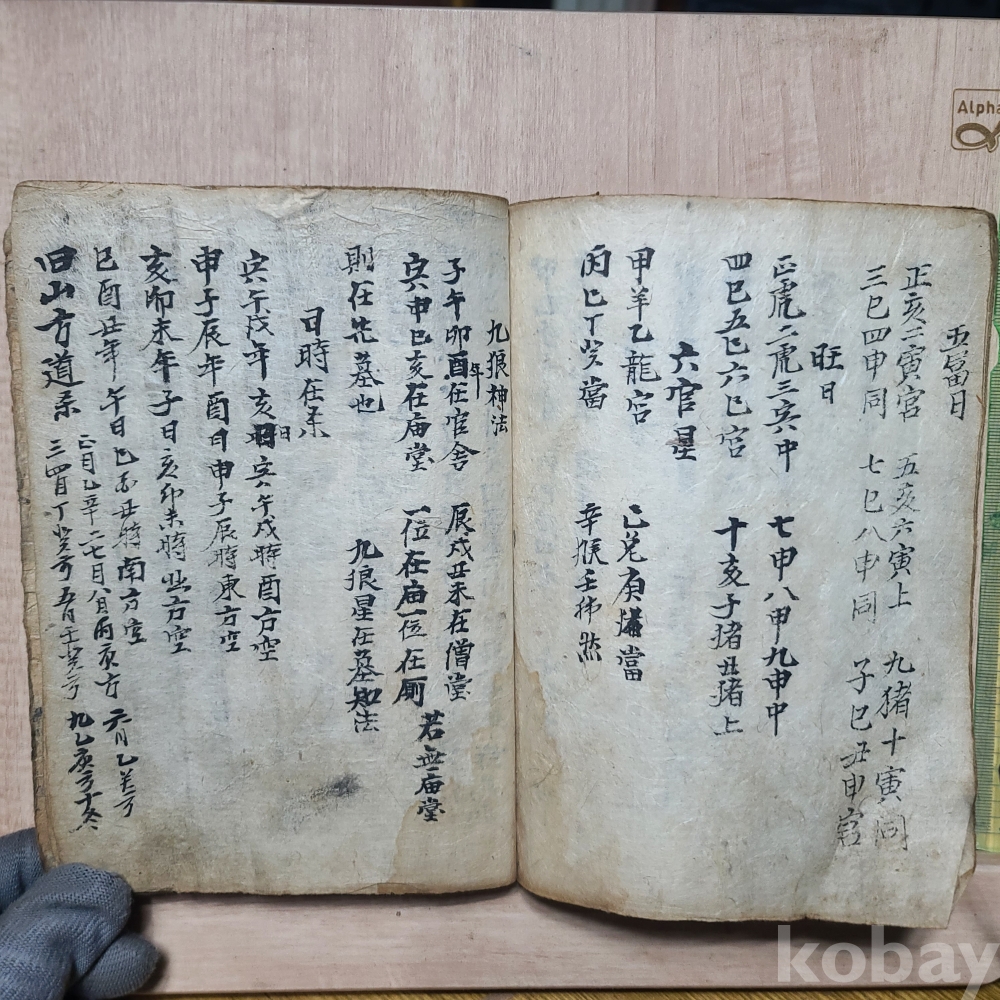 五富日
正亥二寅宮 五亥六寅上 九猪十寅同
三巳四申同 七巳八申同 子巳丑申宮
旺日
正虎二虎三寅中 七申八申九申中
四巳五巳六巳宮 十亥子猪丑猪上
六官星
甲羊乙龍宮 己兔庚 當
丙巳丁 當 辛猴壬
九狼神法
子午卯酉年在官舍 辰戌丑未在僧堂
寅申巳亥在庙堂 一位在庙一位在厠 若無庙堂
則在 墓也 九狼星在墓知法
日時在
寅午戌年 亥日 寅午戌時酉方空
申子辰年酉日申子辰時東方空
亥卯未年子日亥卯未時北方空
巳酉丑年 午日巳酉丑時南方空
正月乙辛二七月八月丙庚方 六月乙 方
三四月丁癸方五月壬 方 九乙庚方十
Alpha
kobay